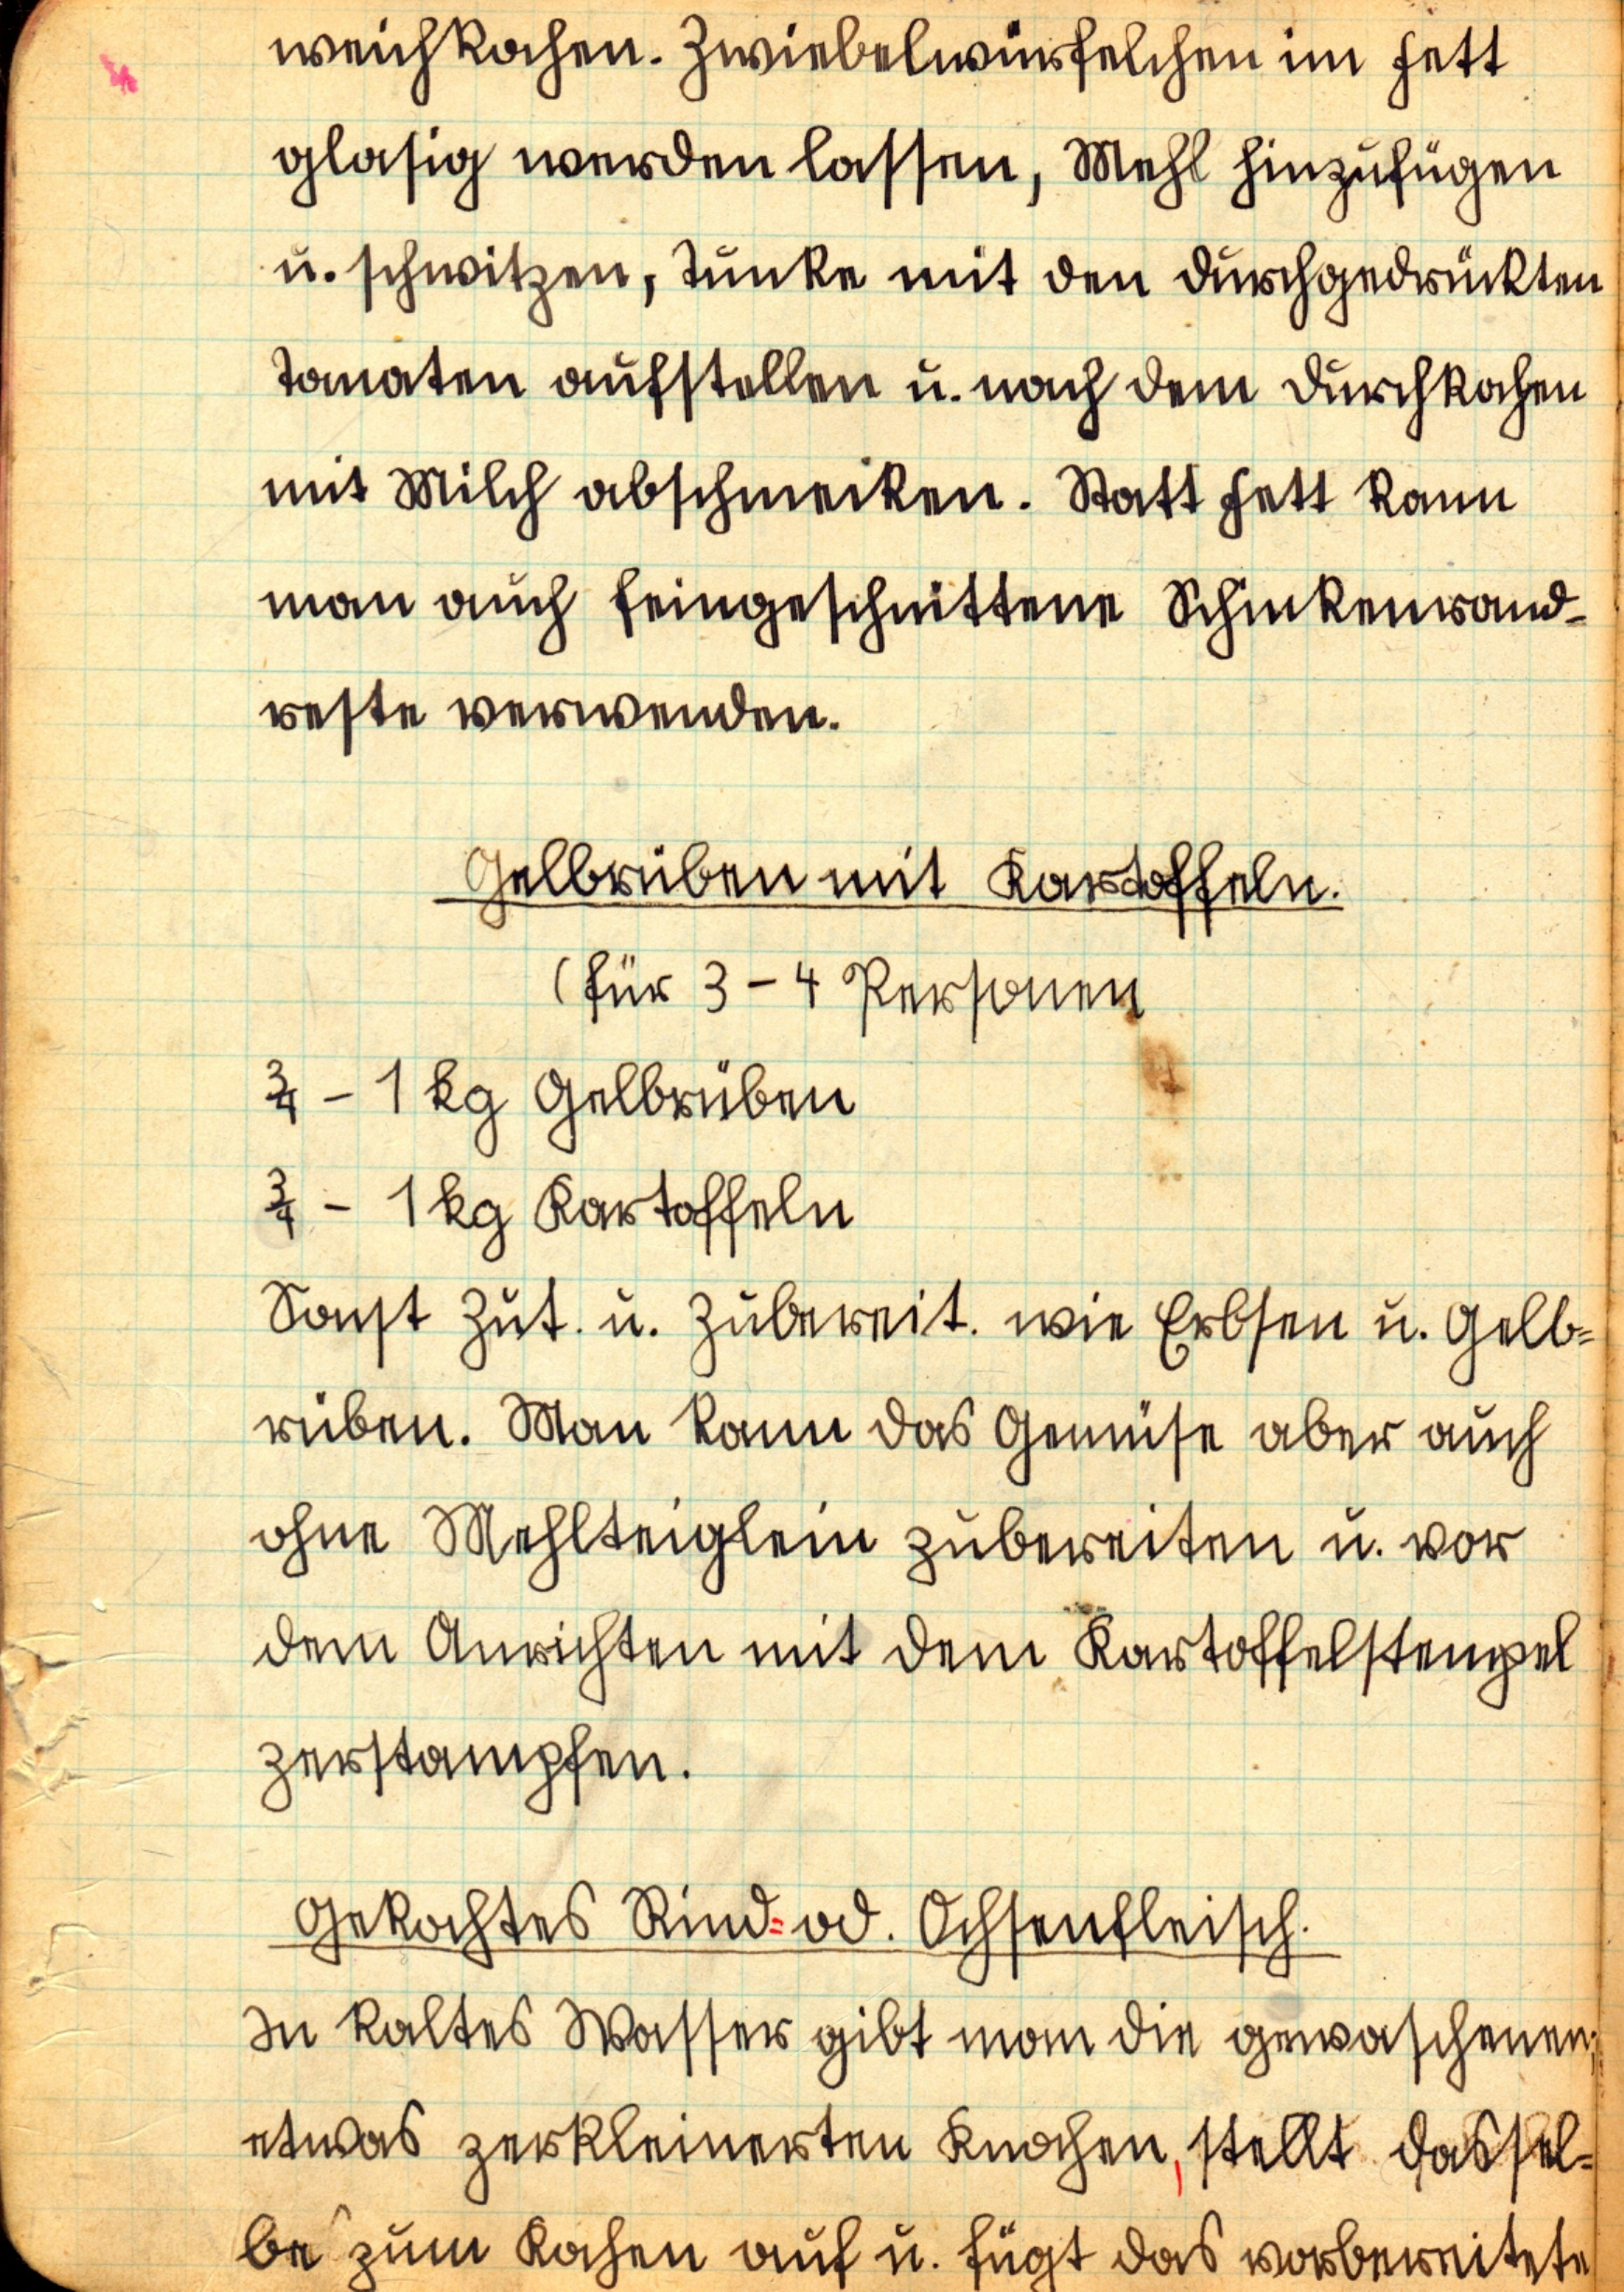 weichkochen. Zwiebelwürfelchen im Fett
glasig werden lassen, Mehl hinzufügen
u. schwitzen, Tunke mit den durchgedrückten
Tomaten aufstellen u. nach dem Durchkochen
mit Milch abschmecken. Statt Fett kann
man auch feingeschnittene Schinkenrand-
reste verwenden.
Gelbrüben mit Kartoffeln.
(für 3 - 4 Personen
3/4 - 1 kg Gelbrüben
3/4 - 1 kg Kartoffeln
Sonst Zut. u. Zubereit. wie Erbsen u. Gelb=
rüben. Man kann das Gemüse aber auch
ohne Mehlteiglein zubereiten u. vor
dem Anrichten mit dem Kartoffelstempel
zerstampfen.
Gekochtes Rind= od. Ochsenfleisch.
In kaltes Wasser gibt man die gewaschenen,
etwas zerkleinerten Knochen, stellt dassel=
be zum Kochen auf u. fügt das vorbereitete